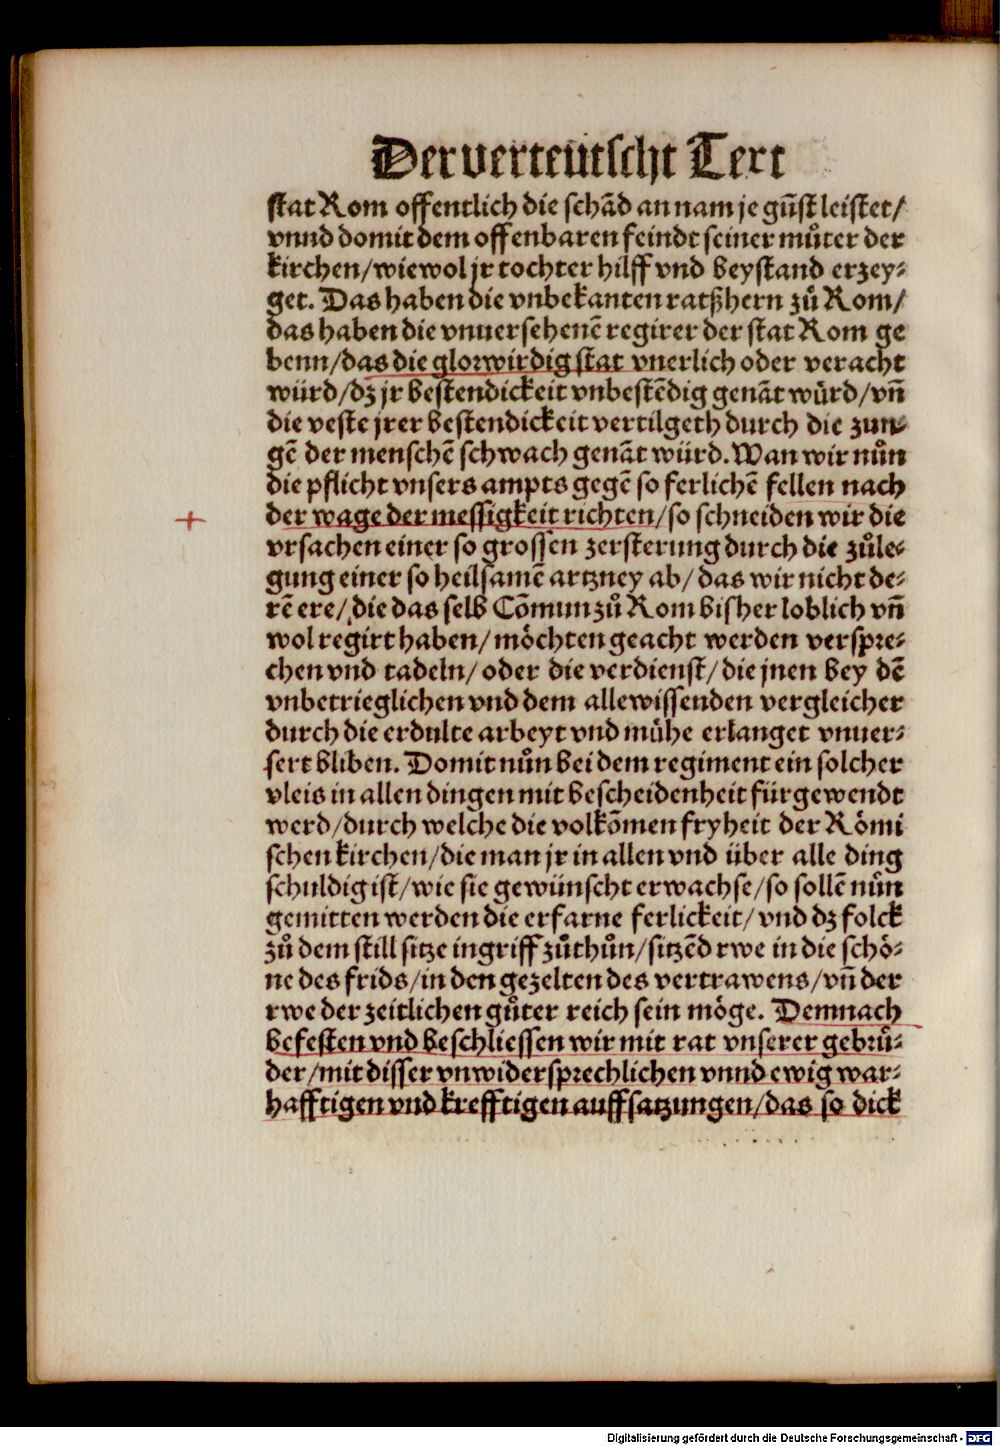 Der verteütscht Text
stat Rom offentlich die schãd an nam je gũst leistet/
vnnd domit dem offenbaren feindt seiner můter der
kirchen/wiewol jr tochter hilff vnd beystand erzey⸗
get. Das haben die vnbekanten ratßhern zů Rom/
das haben die vnuersehenẽ regirer der stat Rom ge
benn/das die glorwirdig stat vnerlich oder veracht
würd/dz̃ jr bestendickeit vnbestẽdig genãt würd/vñ
die veste jrer bestendickeit vertilgeth durch die zun⸗
gẽ der menschẽ schwach genãt würd. Wan wir nůn
die pflicht vnsers ampts gegẽ so ferlichẽ fellen nach
der wage der messigkeit richten/so schneiden wir die
vrsachen einer so grossen zersterung durch die zůle⸗
gung einer so heilsamẽ artzney ab/das wir nicht de⸗
rẽ ere/die das selb Cõmun zů Rom bisher loblich vñ
wol regirt haben/möchten geacht werden verspre⸗
chen vnd tadeln/oder die verdienst/die jnen bey dẽ
vnbetrieglichen vnd dem allewissenden vergleicher
durch die erdulte arbeyt vnd mühe erlanget vnuer⸗
sert bliben. Domit nůn bei dem regiment ein solcher
vleis in allen dingen mit bescheidenheit fürgewendt
werd/durch welche die volkõmen fryheit der Römi
schen kirchen/die man jr in allen vnd über alle ding
schuldig ist/wie sie gewünscht erwachse/so sollẽ nůn
gemitten werden die erfarne ferlickeit/vnd dz folck
zů dem still sitze ingriff zůthůn/sitzẽd rwe in die schö⸗
ne des frids/in den gezelten des vertrawens/vñ der
rwe der zeitlichen gůter reich sein möge. Demnach
befesten vnd beschliessen wir mit rat vnserer gebrů⸗
der/mit disser vnwidersprechlichen vnnd ewig war⸗
hafftigen vnd krefftigen auffsatzungen/das so dick
Digitalisierung gefördert durch die Deutsche Forschungsgemeinschaft - DFG